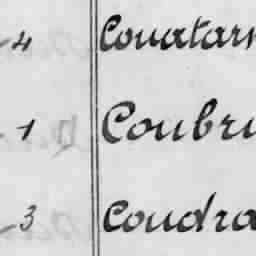 4 Couatarm
1 Coubru
3 Coudra